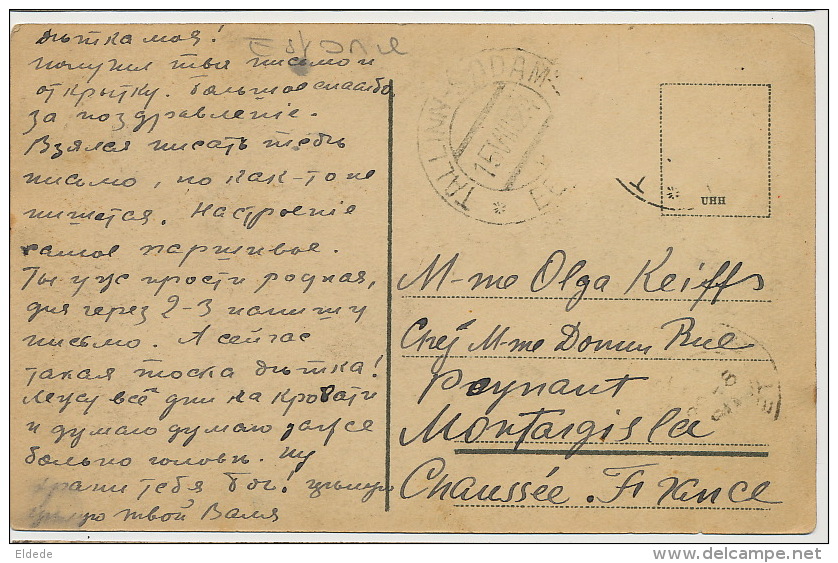 Дѣтка моя!
получил твои письмо и
открытку. Большое спасибо
за поздравленiе.
Взялся писать тебѣ
письмо, но как-то не
пишется. Настроенiе
самое паршивое.
Ты уж прости родная,
дня через 2-3 напишу
письмо. А сейчас
такая тоска дѣтка!
Лежу всё дни на кровати
и думаю думаю даже
больно головѣ. Ну
храни тебя Бог! цѣлую
цѣлую твой Валя
TALLINN
EESTI
T
UHH
M-me Olga Keiffs
Chez M-me Domin Rue
Paynaut
Montargis la
Chaussée. France
Eldede
delcampe.net